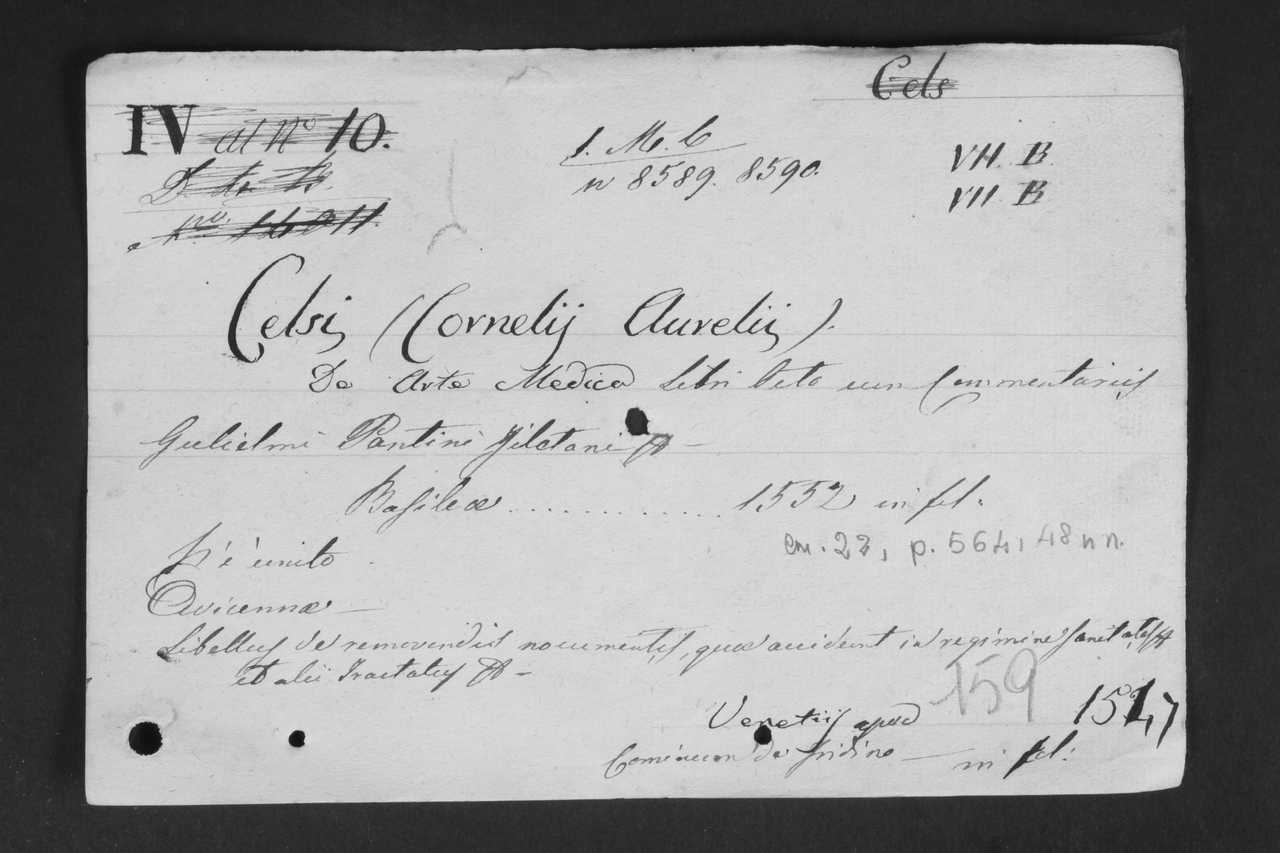 Cels
IV al No 10.
I. M. C
n 8589. 8590.
VII. B
VII B
Celsi, (Cornelij Aurelii).
De Arte Medica Libri Octo cum Commentariis
Gulielmi Pantini Tiletani &
Basileæ ............. 1552 in fol:
cm. 22, p. 564, 48 nn.
V'è unito
Avicennæ
Libellus de removendis nocumentis, quæ accidunt in regimine sanitatis &
et alii Tractatus & -
159
Venetiis apud 1547
Cominum de Tridino — in fol: